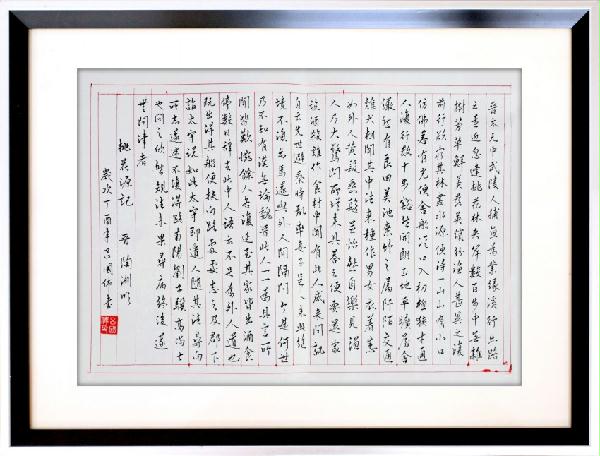 晉太元中武陵人捕魚為業緣溪行忘路
之遠近忽逢桃花林夾岸數百步中無雜
樹芳草鮮美落英繽紛漁人甚異之復
前行欲窮其林林盡水源便得一山山有小口
仿佛若有光便舍船從口入初極狹才通
人復行數十步豁然開朗土地平曠屋舍
儼然有良田美池桑竹之屬阡陌交通
雞犬相聞其中往來種作男女衣著悉
如外人黃髮垂髫並怡然自樂見漁
人乃大驚問所從來具答之便要還家
設酒殺雞作食村中聞有此人咸來問訊
自云先世避秦時亂率妻子邑人來此絕
境不復出焉遂與外人間隔問今是何世
乃不知有漢無論魏晉此人一一為具言所
聞皆歎惋餘人各復延至其家皆出酒食
停數日辭去此中人語云不足為外人道也
既出得其船便扶向路處處志之及郡下
詣太守說如此太守即遣人隨其往尋向
所志遂迷不復得路南陽劉子驥高尚士
也聞之欣然規往未果尋病終後遂
無問津者
桃花源記 晉 陶淵明
歲次丁酉年 呂國